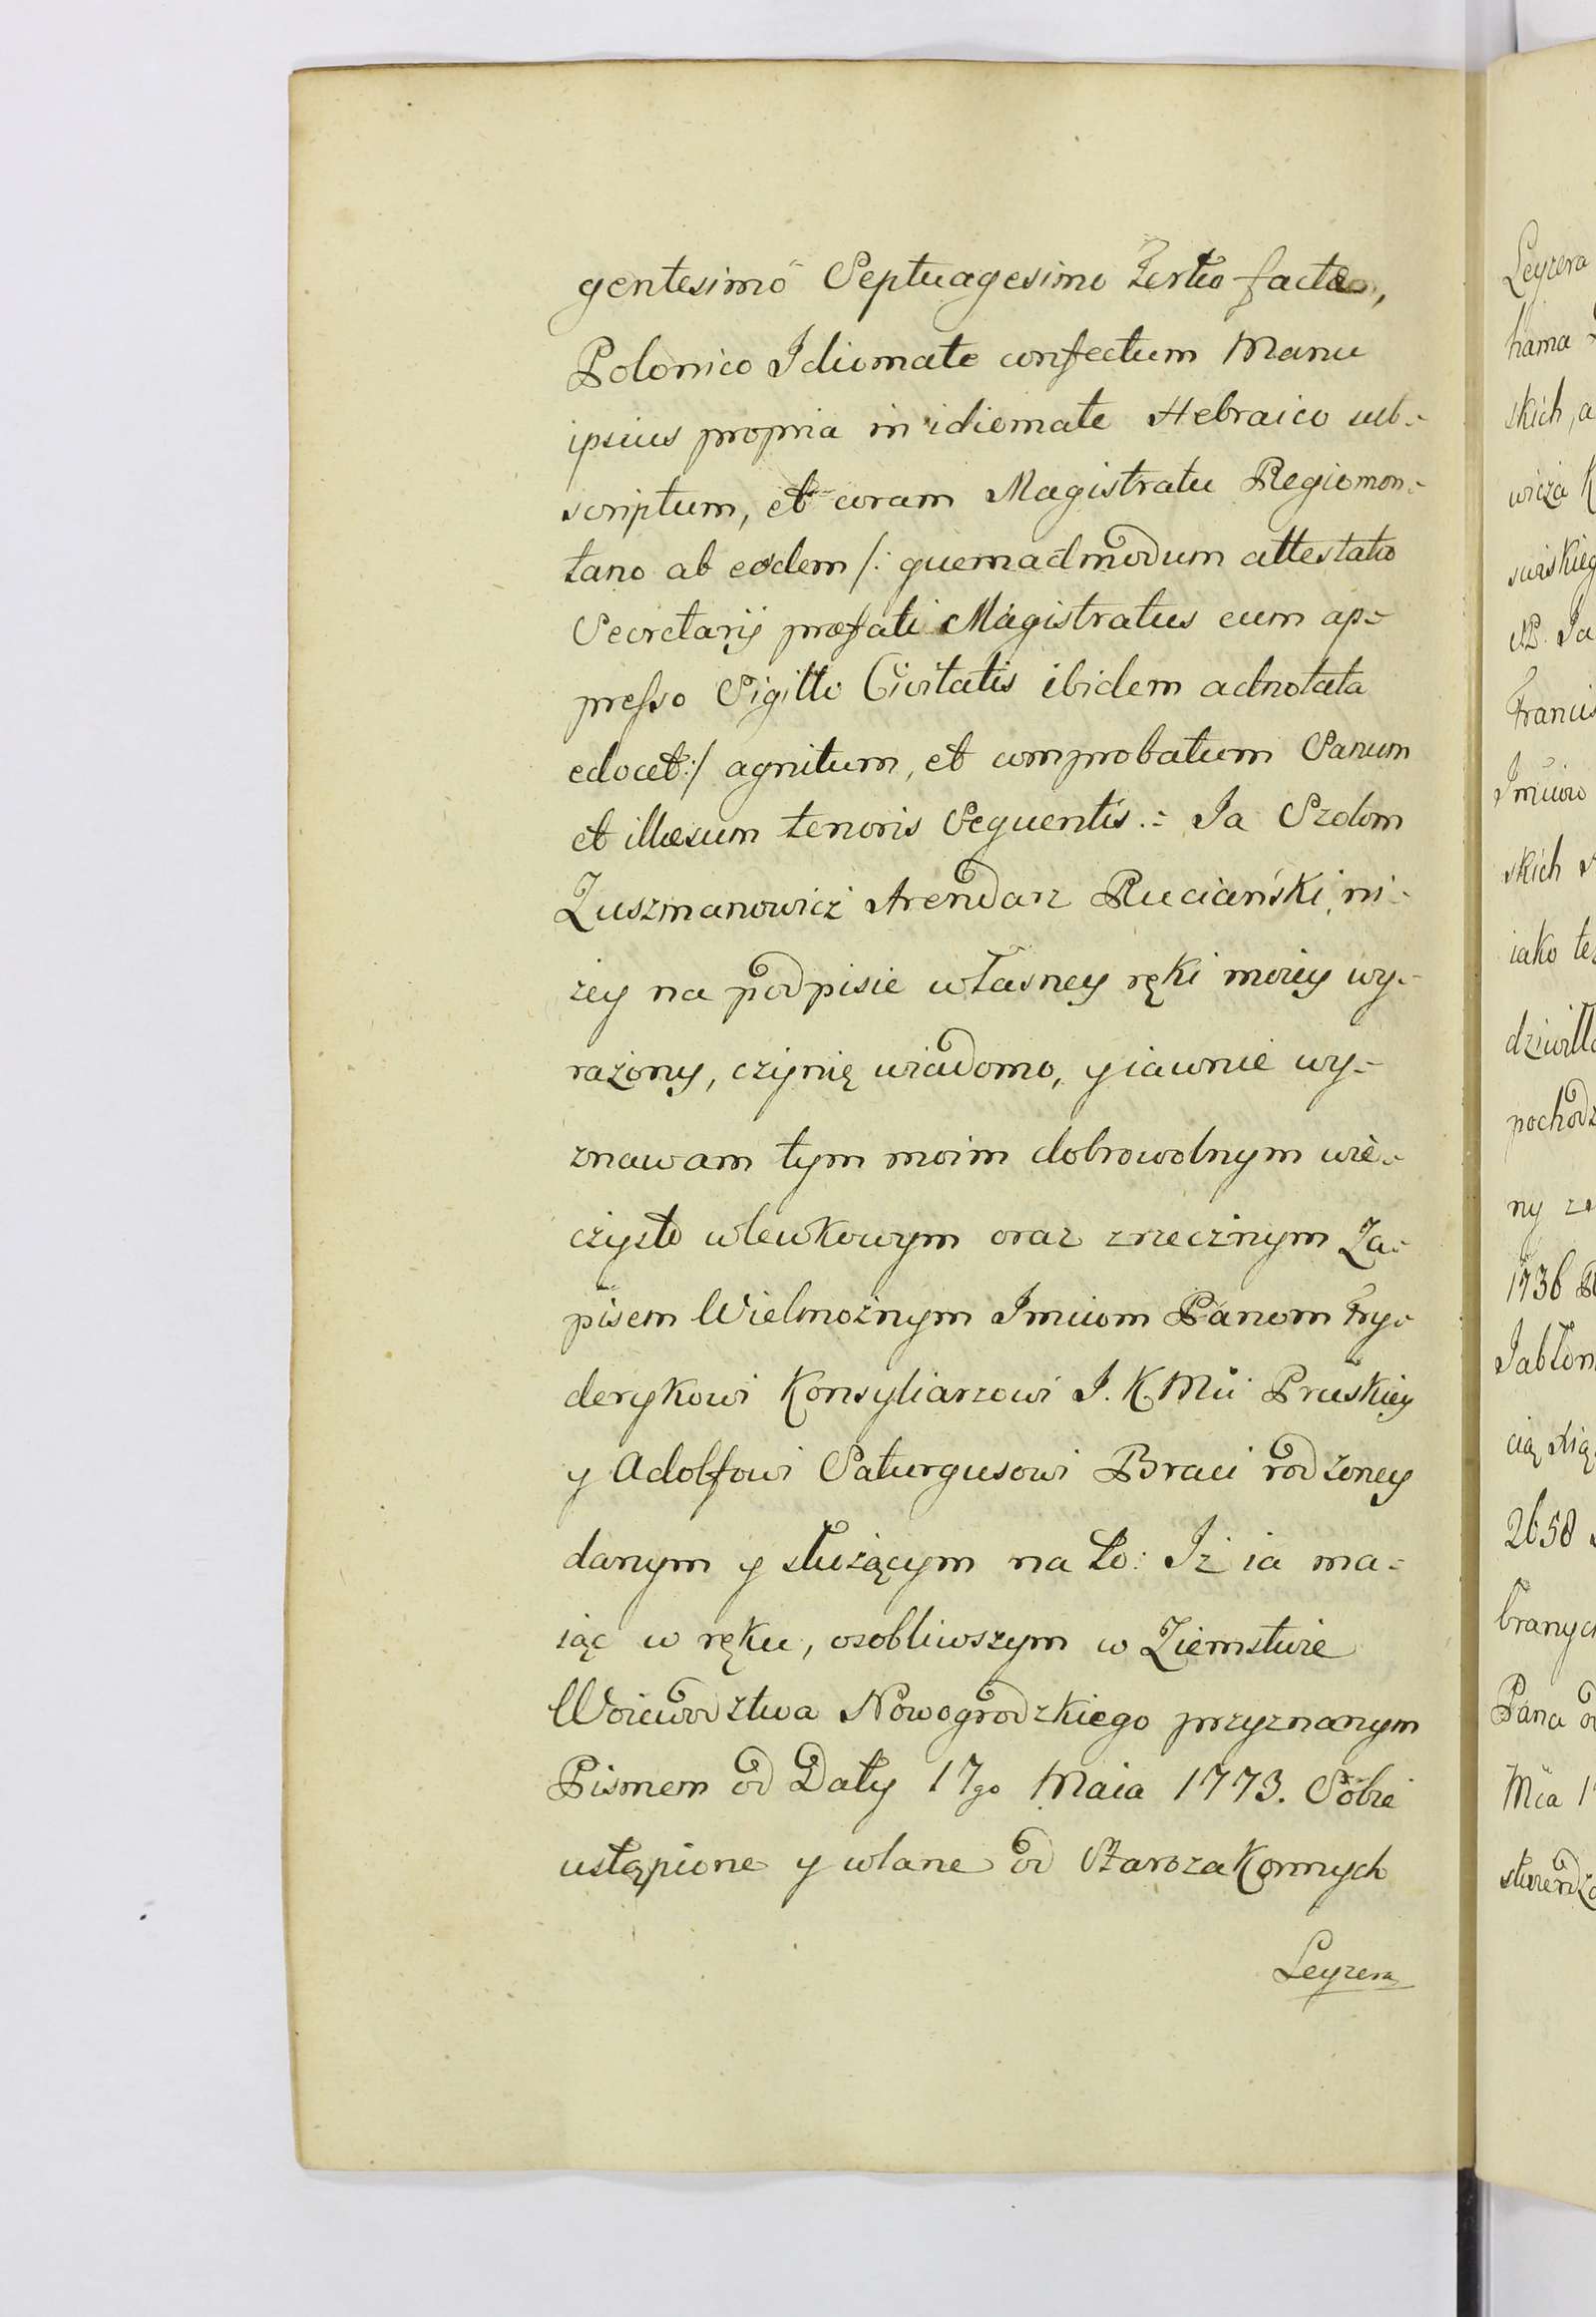 gentesimo Septuagesimo Tertio facto,
Polonico Idiomate confectum Manu
ipsius propria in idiomate Hebraico sub=
scriptum, et coram Magistratu Regiomon=
tano ab eodem /: quemadmodum attestatio
Secretarij præfati Magistratus cum ap=
presso Sigillo Civitatis ibidem adnotata
edocet :/ agnitum, et comprobatum Sanum
et illæsum tenoris Sequentis.= Ia Szolom
Zuszmanowicz Arendarz Ruciański ni=
żey na podpisie własney ręki moiey wy=
rażony, czynię wiadomo, y iawnie wy=
znawam tym moim dobrowolnym wie=
czysto wlewkowym oraz zrzecznym Za=
pisem Wielmożnym Imciom Panom Fry=
derykowi Konsyliarzowi J. K. Mci Pruskiey
y Adolfowi Saturgusowi Braci rodzoney
danym y służącym na to: Iż ia ma=
iąc w ręku, osobliwszym w Ziemstwie
Woiewodztwa Nowogrodzkiego przyznanym
Pismem od Daty 17go Maia 1773. Sobie
ustąpione y wlane od Starozakonnych
Leyzera
Leyzera
hama
skich, a
wicza K
swiskieg
Ia
Francis
Imciow
skich
iako te
dziwiłł
pochodz
ny
1736
Jabłon
cią
2658
branych
Pana
Mca 1